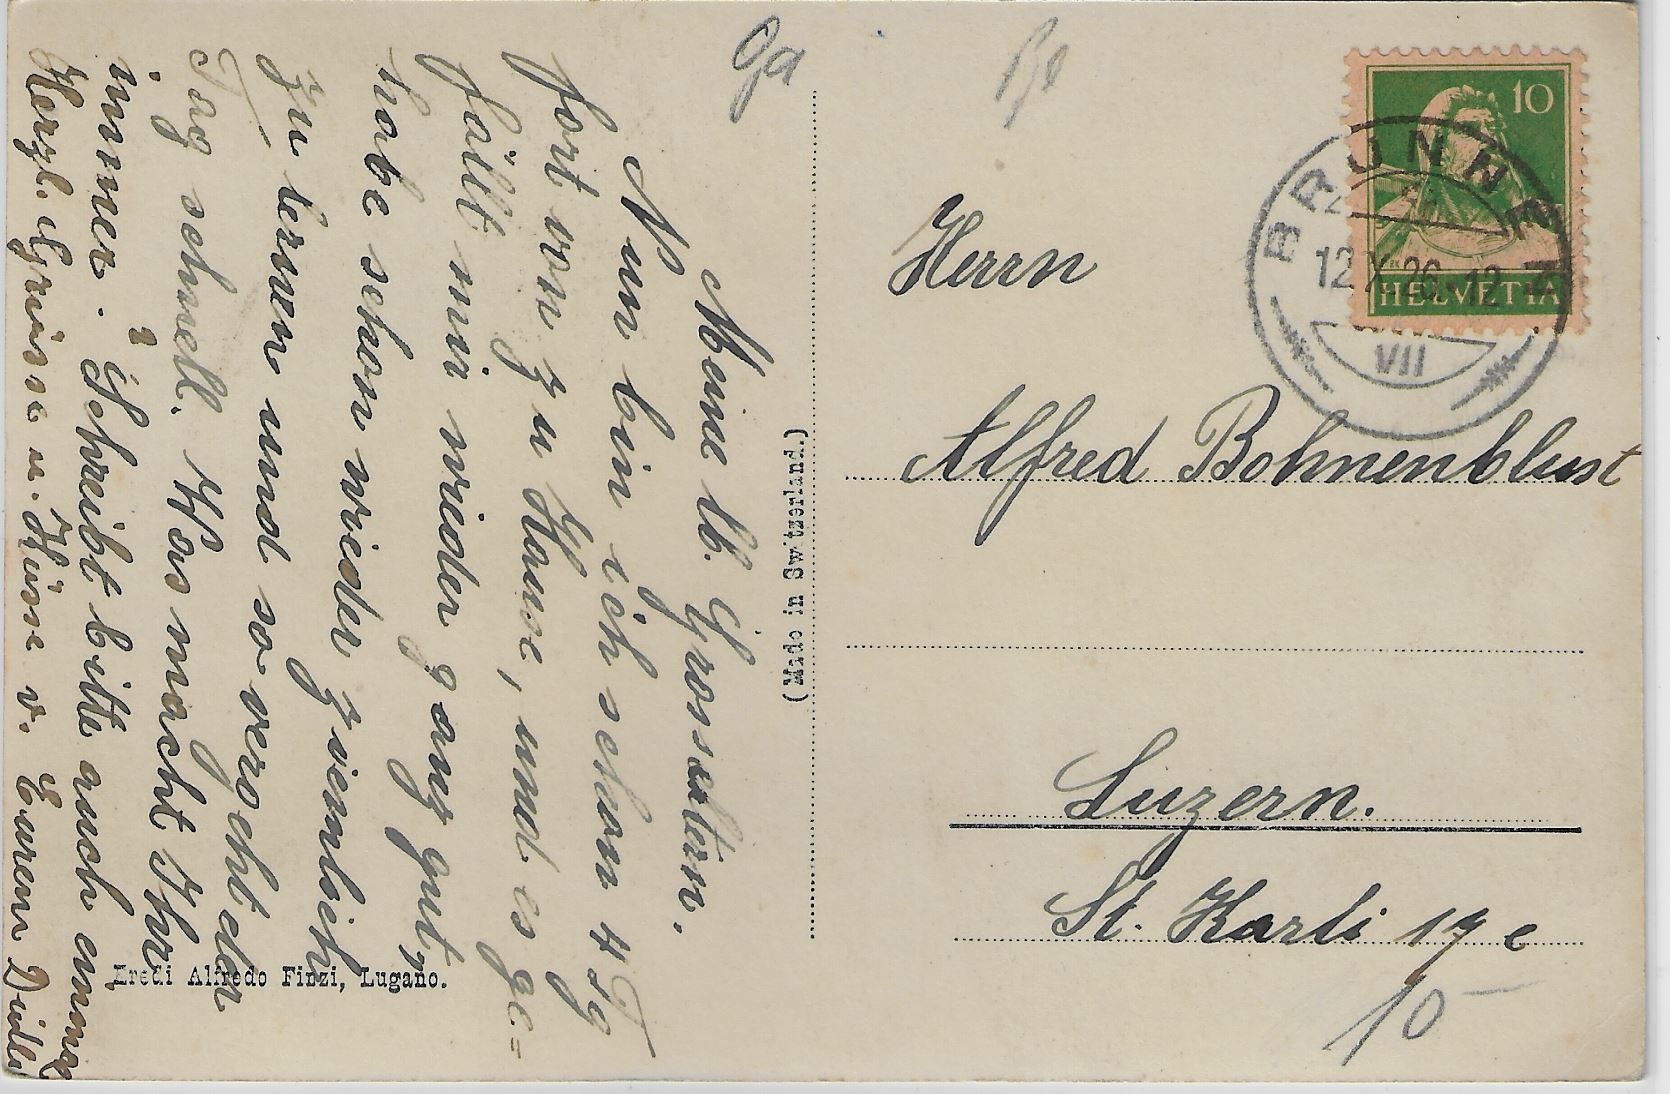 Meine lb. Grosseltern.
Nun bin ich schon 4 Tg
fort von zu Hause, und es ge=
fällt mir wieder ganz gut,
habe schon wieder ziemlich
zu lernen und so vergeht der
Tag schnell. Was macht Ihr
immer. ? Schreibt bitte auch einmal
Herzl. Grüsse u. Küsse v. Eurem
(Made in Switzerland.)
Eredi Alfredo Finzi, Lugano.
10
HELVETIA
BRUNNEN
12.X.26.-12
VII
Herrn
Alfred Bohnenblust
Luzern.
St. Karli 19 c
10